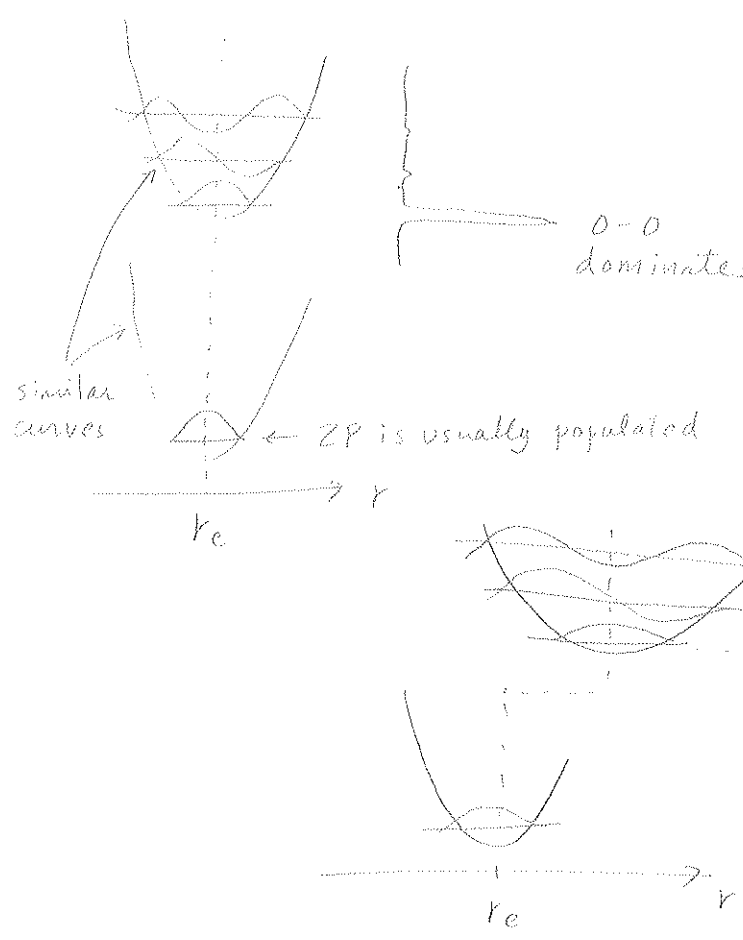 0-0
dominate
similar
curves
← ZP is usually populated
r
re
r
re